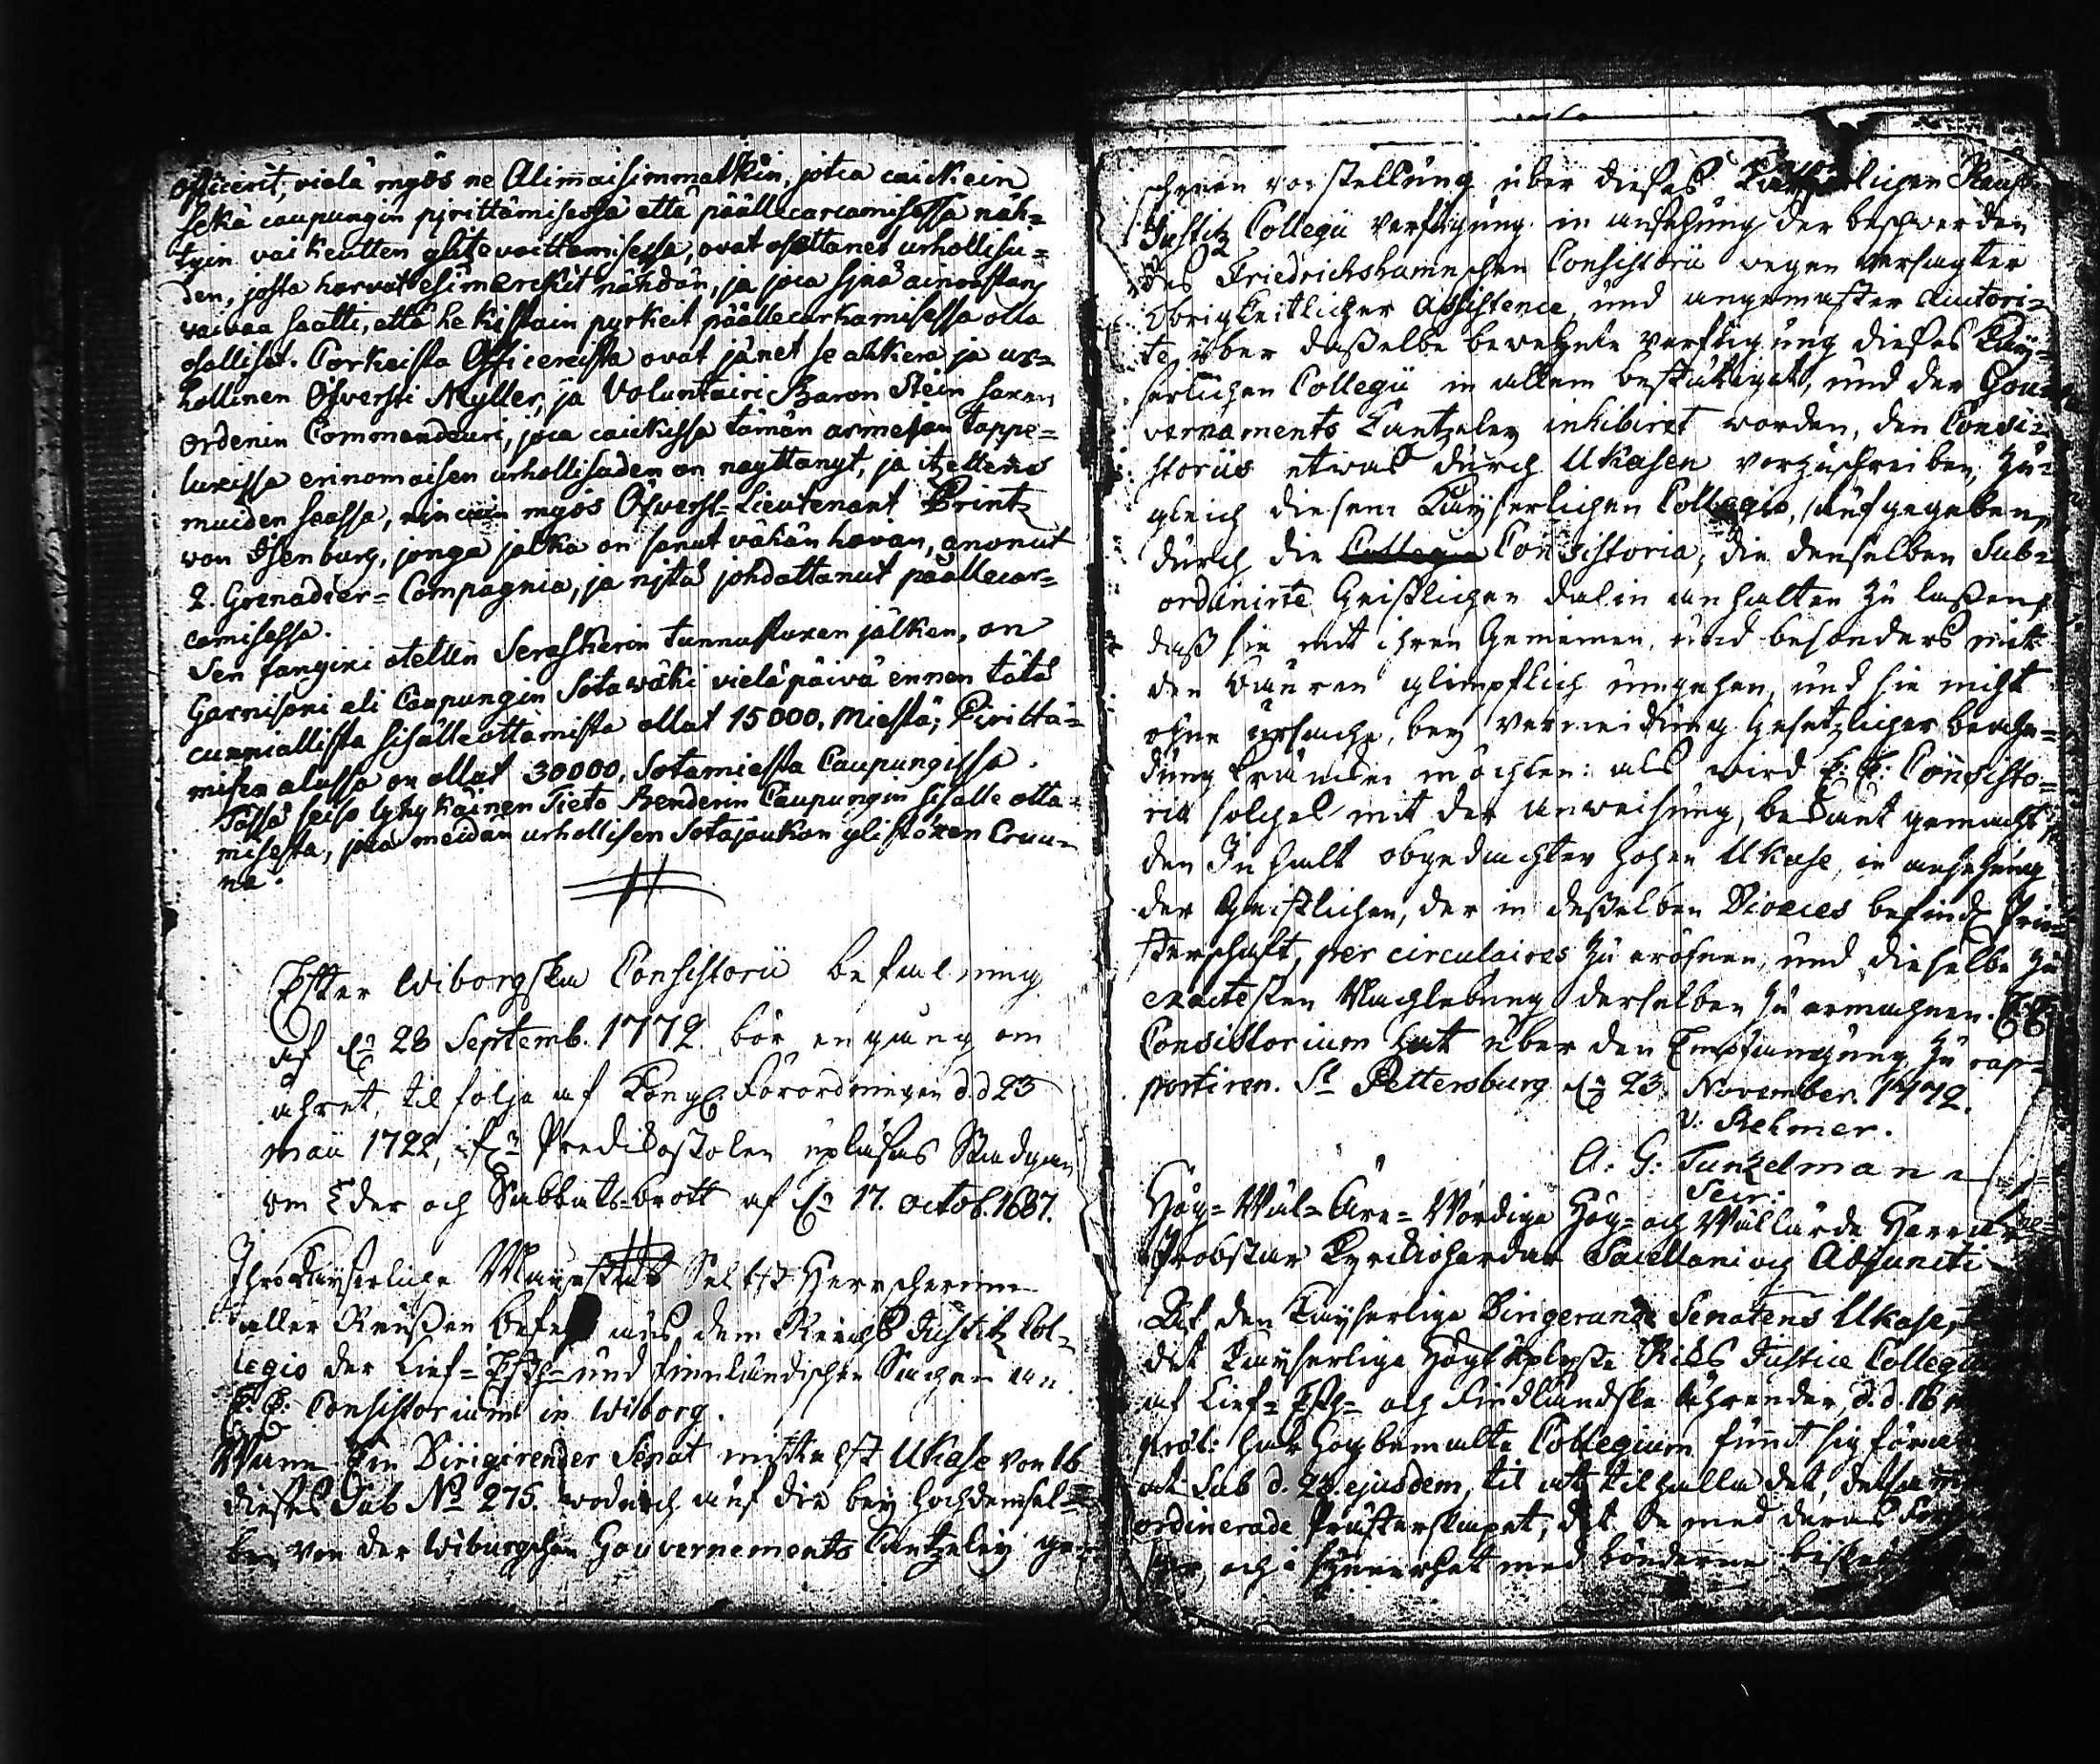 Officerit, vielä myös ne Alimaisimmatkin, jotca caickein
sekä caupungin pjrittämisessä että päällecarcamisessa näh=
tyin vaikeutten ylitevoittamisessa, ovat osottanet urhollisu=
den, josta harvat esimerckit nähdän, ja joca sjnä ainoastans
vaivaa saatti, että he kistain pyrkeit päällecarkamisessa olla
osalliset. Corkeista Officereista ovat jänet se ahkera ja ur=
hollinen Öfversti Myller, ja Voluntairi Baron Stein saxen
ordenin Commandeuri, joca caickissa tämän armejan tappe=
luxissa erinomaisen urhollisuden on nayttanyt, ja itzellens
muiden seassa, nin myös Öfverst=Lieutenant Printz
von Isenburg, jonga jalka on sanut vähän havan, anonut
2. Grenadier=Compagnia, ja njtä johdattanut päällecar=
camisessa.
Sen fangixi otetun Seraskerin tunnustuxen jälken, on
Garnisoni eli Caupungin Sotawäki vielä päivä ennen tätä
cunniallista sisälleottamista ollut 15000. Miestä; Piirittä=
misen alussa on ollut 30000. Sotamiestä Caupungissa.
Tässä seiso lyhykäinen Tieto Benderin Caupungin sisälle otta=
misesta, joca meidän urhollisen Sotajoukon ylistöxen Cruu=
na.
Efter Wiborgska Consistorii befalning
af d. 28 Septemb. 1772. bör en gång om
åhret, til följe af Kongl. Förordningen d.d 23
Maii 1722, ifrån Predikostolen upläsas Stadgan
om Eder och Sabbats=brott af d. 17. octob. 1687.
Ihro Kayserliche Mayestät Selbst Herrscherinn
aller Reußen Befehl aus dem Reichs Justitz Col=
legio der Lief= Esth= und finnländischen Sachen an
E. E. Consistorium in Wiborg.
Wann Ein Dirigirender Senat mittelst Ukase von 16
dieses Sub No 275. wodurch auf die bey hochdemsel=
ben von der Wiburgschen Gouvernements Cantzeley ge=
schehenen vorstellung über dieses Kayserlichen Reichs
Justitz Collegii Verfügung in ansehung der beschwerden
des Friedrichshamnschen Consistorii wegen versagter
Obrigkeitlicher Assistence, und angemaster Autori=
te, über daßelbe bewehnte verfügung dieses Kay=
serlichen Collegii in allem bestätiget, und der Gou=
vernaments Cantzeley inhibiret worden, den Consi=
storiis etwas durch Ukasen vorzuschreiben, zu=
gleich diesem Kayserlichen Collegio, aufgegeben,
durch die Consistoria, die denselben Sub=
ordinirte Geistlichen dahin anhalten zu laßen,
daß sie mit ihren Gemeinen, und besonders mit
den Bauren glimpflich umgehen, und sie nicht
ohne ursache, bey vermeidung Gesetzlicher beahn=
dung kräncken möchten: als wird E: E: Consisto=
rio solches mit der anweisung, bekant gemacht,
den Inhalt obgedachter hohen Ukase, in ansehung
der Geistlichen, der in deßelben Dioeces befindl Prie=
sterschaft, per circulaires zu eröfnen, und dieselbe zu
exactesten Nachlebung derselben zu ermahnen. E. E.
Consistorium hat über den Empfangung zu rap=
portiren. St Pettersburg d. 23. November. 1772.
V: Rehmer.
A: G: Tunzelmann
Secr:
Hög= Wäl= Äre= Wördige Hög= och Wällärde Herrar
Probstar Kyrckioherdar Sacellani och Adjuncti
Uti den Kayserlige Dirigerande Senatens Ukase,
det Kayserlige Högtuplyste Riks Justice Collegii
af Lief= Esth= och Findländske ährender, d.d. 16
pros: har Högbemälte Collegium funnit sig föran
at Sub d. 23. ejusdem, til at tilhålla det, detsamma
ordinerade Prästerskapet, det de med deras För
och i synnerhet med bönderne